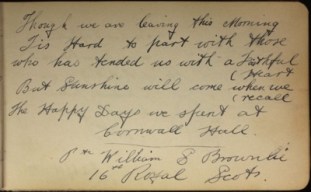 Though we are leaving this morning
Tis Hard to part with those
who has tended us with a Faithful
(Heart
But Sunshine will come when we
(recall
The Happy Days we spent at
Cornwall Hall.
Pte William S Brownlie
16th Royal Scots.